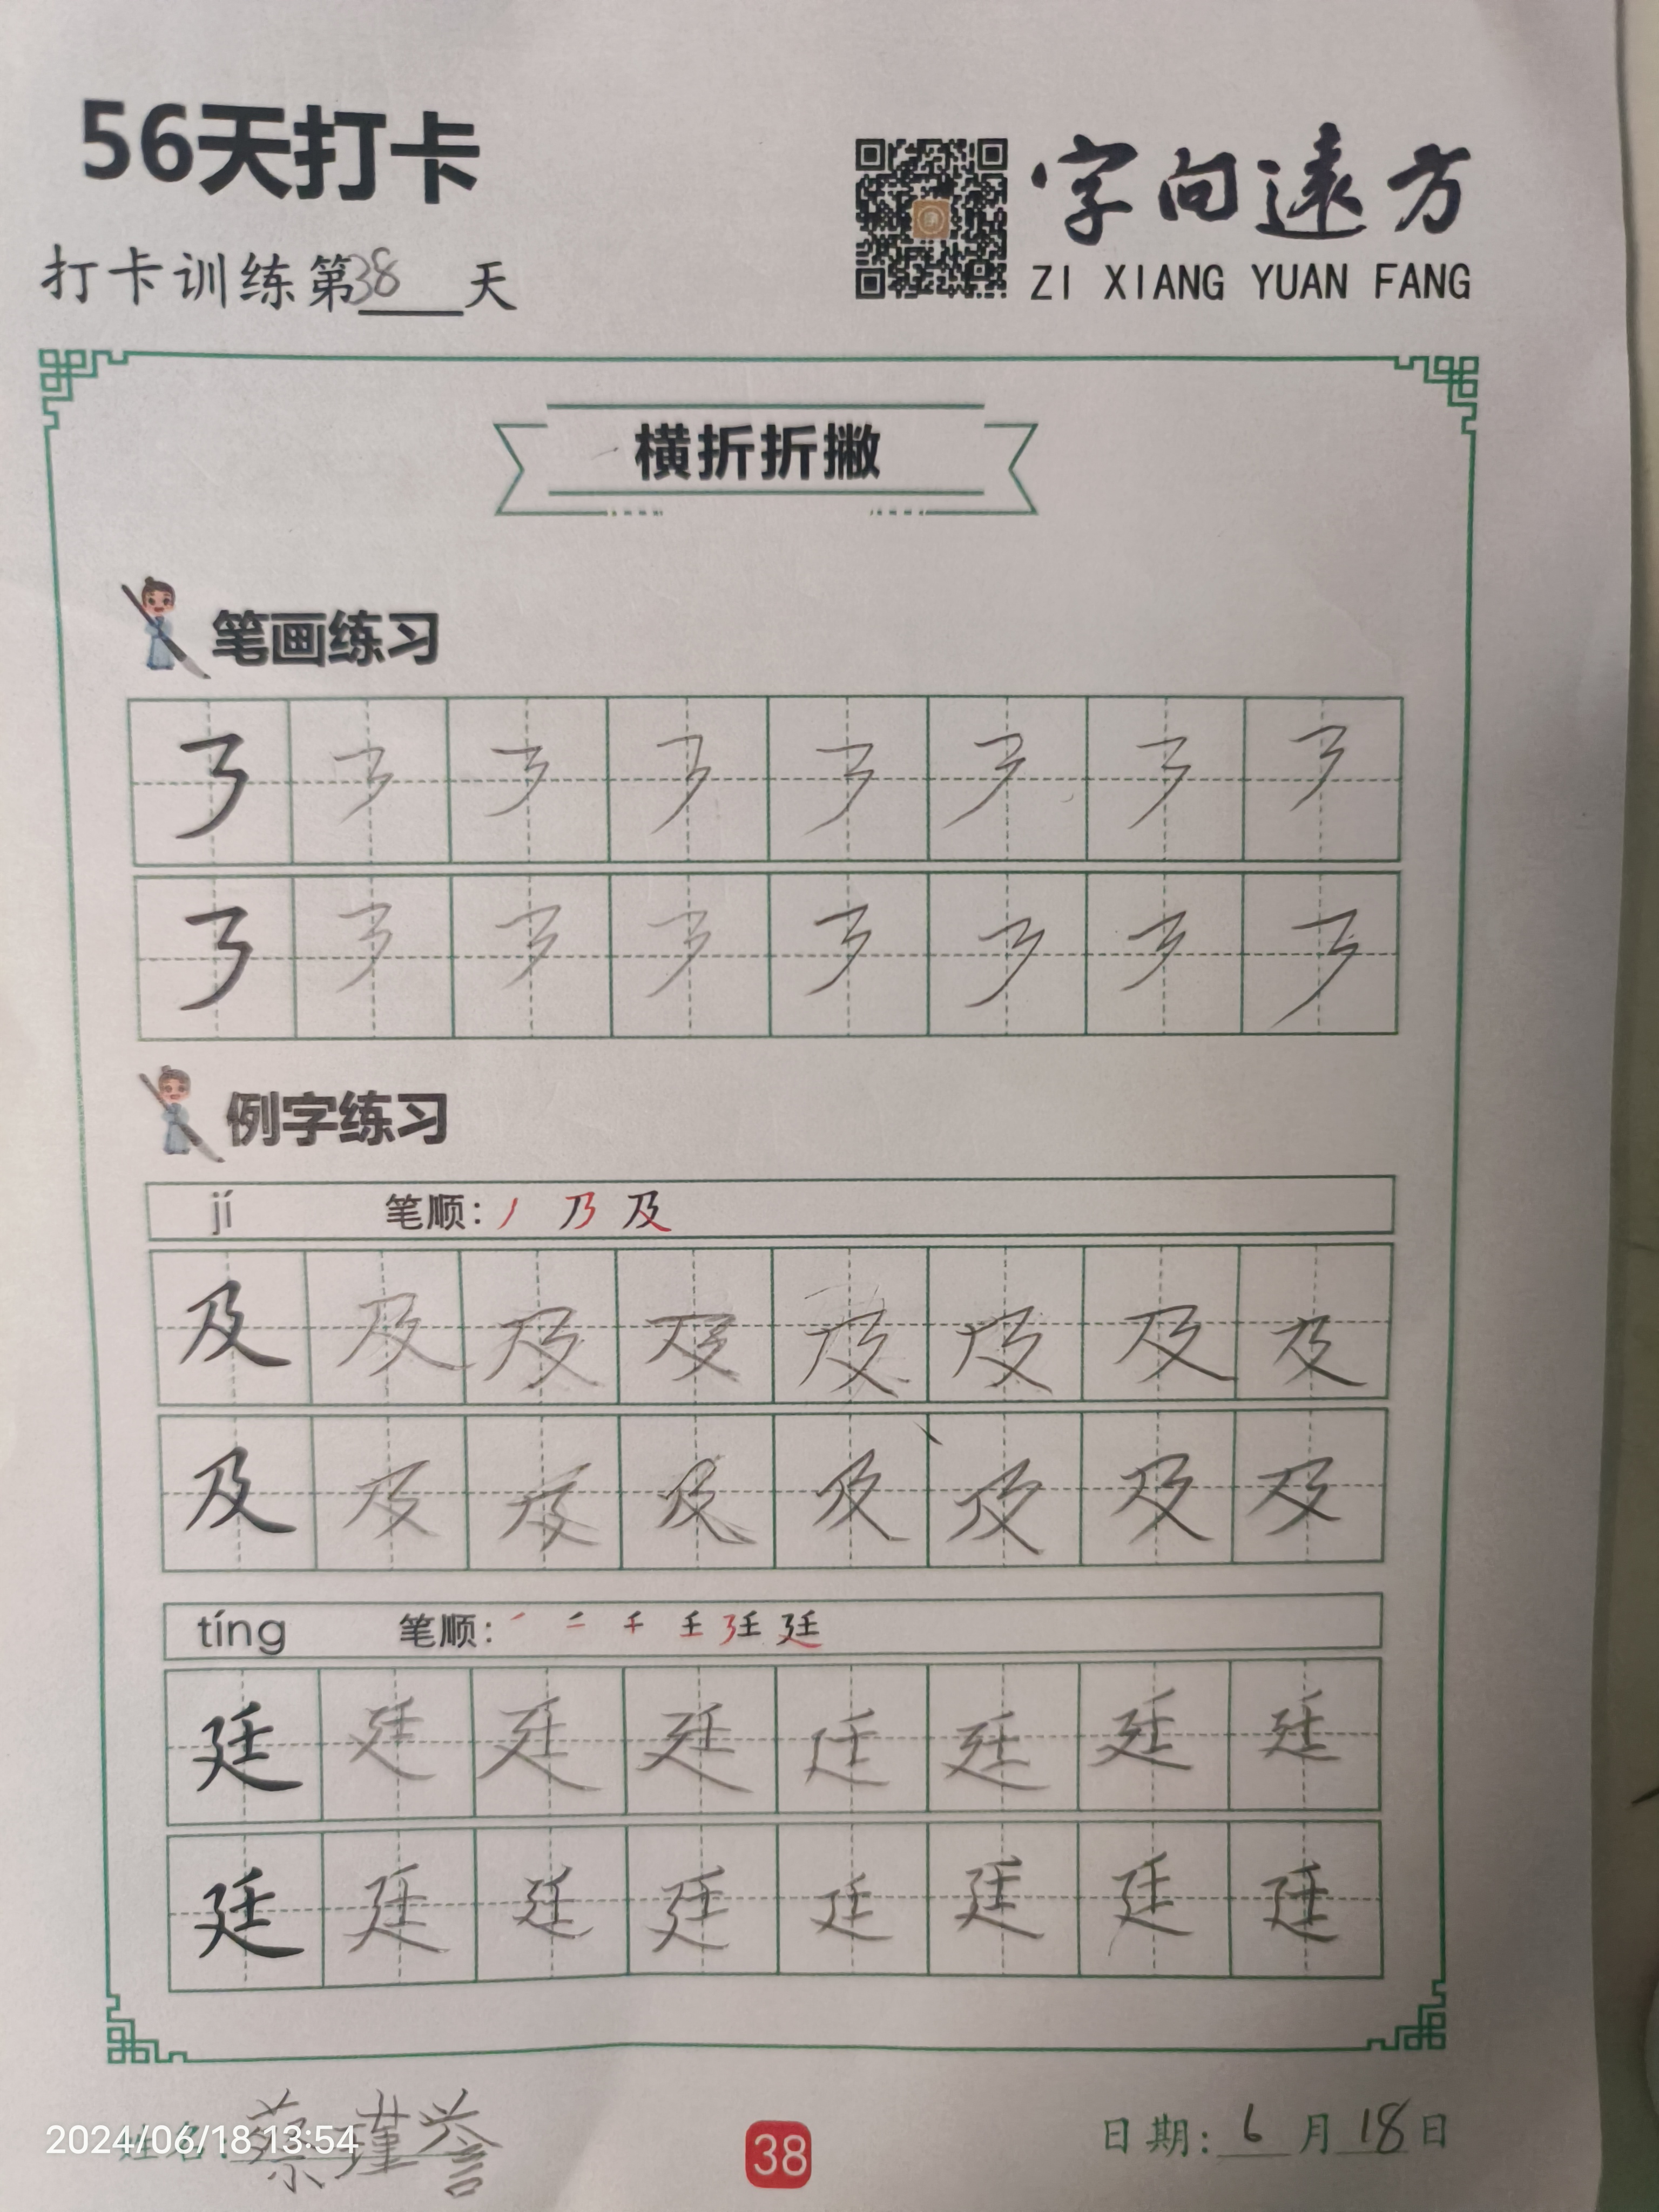 56天打卡
字向遠方
打卡训练第38天
ZI XIANG YUAN FANG
横折折撇
笔画练习
例字练习
jí 笔顺: 丿 乃 及
及 及 及 及 及 及 及 及
及 及 及 及 及 及 及 及
tíng 笔顺:
廷 廷 廷 廷 廷 廷 廷 廷
廷 廷 廷 廷 廷 廷 廷 廷
姓名: 蔡瑾誉
2024/06/18 13:54
38
日期: 6月18日